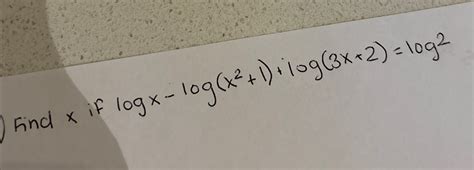 ) Find x if log x - log(x²+1) + log(3x+2) = log 2